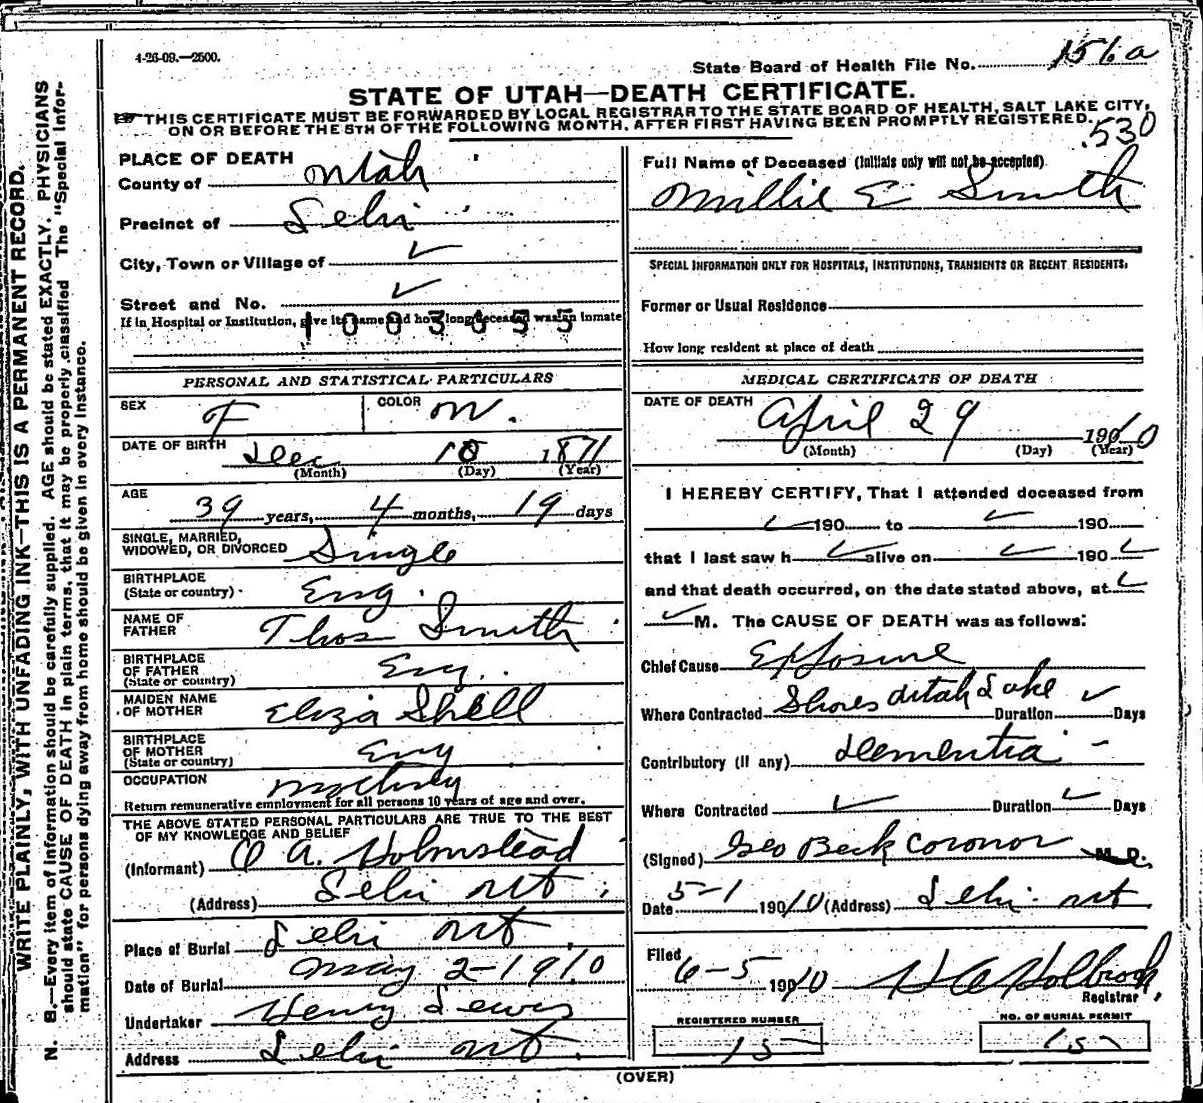 4-26-09.—2500.
State Board of Health File No. 156a
STATE OF UTAH—DEATH CERTIFICATE.
THIS CERTIFICATE MUST BE FORWARDED BY LOCAL REGISTRAR TO THE STATE BOARD OF HEALTH, SALT LAKE CITY,
ON OR BEFORE THE 5TH OF THE FOLLOWING MONTH, AFTER FIRST HAVING BEEN PROMPTLY REGISTERED.
530
PLACE OF DEATH
County of Utah
Precinct of Lehi
City, Town or Village of ✓
Street and No. ✓
If in Hospital or Institution, give its name and how long deceased was an inmate
1003655
Full Name of Deceased (Initials only will not be accepted)
Millie E Smith
SPECIAL INFORMATION ONLY FOR HOSPITALS, INSTITUTIONS, TRANSIENTS OR RECENT RESIDENTS.
Former or Usual Residence
How long resident at place of death
PERSONAL AND STATISTICAL PARTICULARS
SEX F COLOR W.
DATE OF BIRTH Dec 10 1871
(Month) (Day) (Year)
AGE
39 years, 4 months, 19 days
SINGLE, MARRIED,
WIDOWED, OR DIVORCED Single
BIRTHPLACE
(State or country) Eng.
NAME OF
FATHER Thos Smith
BIRTHPLACE
OF FATHER
(State or country) Eng.
MAIDEN NAME
OF MOTHER Eliza Shell
BIRTHPLACE
OF MOTHER
(State or country) Eng
OCCUPATION
Return remunerative employment for all persons 10 years of age and over.
THE ABOVE STATED PERSONAL PARTICULARS ARE TRUE TO THE BEST
OF MY KNOWLEDGE AND BELIEF
(Informant) A. Holmstead
(Address) Lehi Ut.
Place of Burial Lehi Ut.
Date of Burial May 2-1910
Undertaker Henry Lewis
Address Lehi Ut.
MEDICAL CERTIFICATE OF DEATH
DATE OF DEATH April 29 1910
(Month) (Day) (Year)
I HEREBY CERTIFY, That I attended deceased from
✓ 190 to ✓ 190
that I last saw h ✓ alive on ✓ 190 ✓
and that death occurred, on the date stated above, at ✓
✓ M. The CAUSE OF DEATH was as follows:
Chief Cause Exposure
Where Contracted Shores Utah Lake Duration ✓ Days
Contributory (if any) Dementia
Where Contracted ✓ Duration ✓ Days
(Signed) Geo Beck Coronor M.D.
Date 5-1 1910 (Address) Lehi Ut
Filed 6-5 1910 H A Holbrook
Registrar
REGISTERED NUMBER
15
NO. OF BURIAL PERMIT
15
(OVER)
WRITE PLAINLY, WITH UNFADING INK—THIS IS A PERMANENT RECORD.
N. B.—Every item of Information should be carefully supplied. AGE should be stated EXACTLY. PHYSICIANS
should state CAUSE OF DEATH in plain terms, that it may be properly classified. The "Special Infor-
mation" for persons dying away from home should be given in every instance.